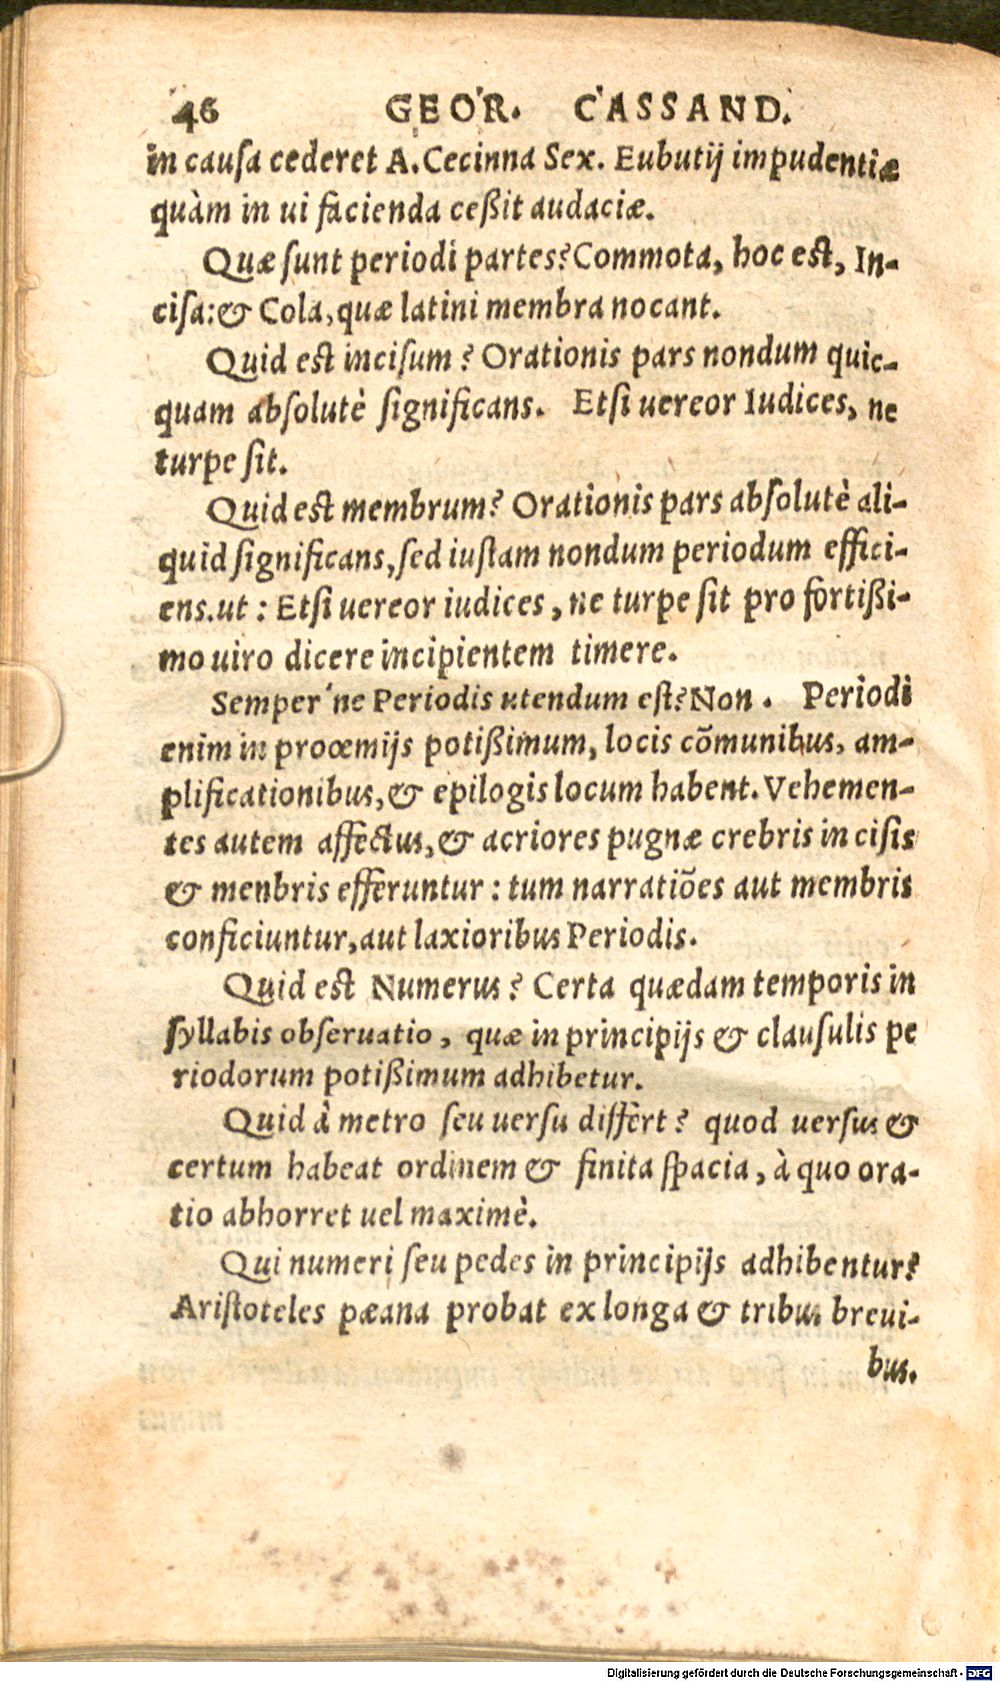 46 GEOR. CASSAND.
in causa cederet A. Cecinna Sex. Eubutij impudentiæ
quàm in ui facienda ceßit audaciæ.
Quæ sunt periodi partes? Commota, hoc est, In-
cisa: & Cola, quæ latini membra nocant.
Quid est incisum? Orationis pars nondum quic-
quam absolutè significans. Etsi uereor Iudices, ne
turpe sit.
Quid est membrum? Orationis pars absolutè ali-
quid significans, sed iustam nondum periodum effici-
ens. ut: Etsi uereor iudices, ne turpe sit pro fortißi-
mo uiro dicere incipientem timere.
Semper'ne Periodis utendum est? Non. Periodi
enim in proœmijs potißimum, locis cõmunibus, am-
plificationibus, & epilogis locum habent. Vehemen-
tes autem affectus, & acriores pugnæ crebris incisis
& menbris efferuntur: tum narratiões aut membris
conficiuntur, aut laxioribus Periodis.
Quid est Numerus? Certa quædam temporis in
syllabis obseruatio, quæ in principijs & clausulis pe
riodorum potißimum adhibetur.
Quid à metro seu uersu differt? quod uersus &
certum habeat ordinem & finita spacia, à quo ora-
tio abhorret uel maximè.
Qui numeri seu pedes in principijs adhibentur?
Aristoteles pæana probat ex longa & tribus breui-
bus.
Digitalisierung gefördert durch die Deutsche Forschungsgemeinschaft - DFG